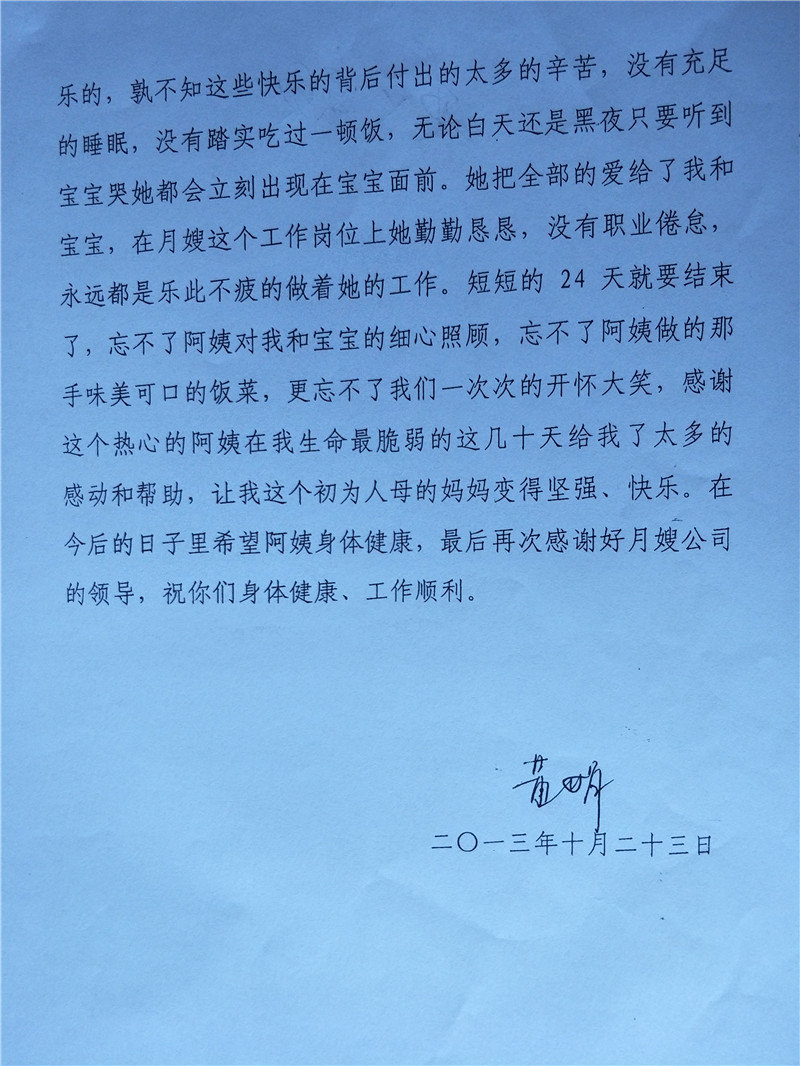 乐的，孰不知这些快乐的背后付出的太多的辛苦，没有充足
的睡眠，没有踏实吃过一顿饭，无论白天还是黑夜只要听到
宝宝哭她都会立刻出现在宝宝面前。她把全部的爱给了我和
宝宝，在月嫂这个工作岗位上她勤勤恳恳，没有职业倦怠，
永远都是乐此不疲的做着她的工作。短短的 24 天就要结束
了，忘不了阿姨对我和宝宝的细心照顾，忘不了阿姨做的那
手味美可口的饭菜，更忘不了我们一次次的开怀大笑，感谢
这个热心的阿姨在我生命最脆弱的这几十天给我了太多的
感动和帮助，让我这个初为人母的妈妈变得坚强、快乐。在
今后的日子里希望阿姨身体健康，最后再次感谢好月嫂公司
的领导，祝你们身体健康、工作顺利。
二〇一三年十月二十三日